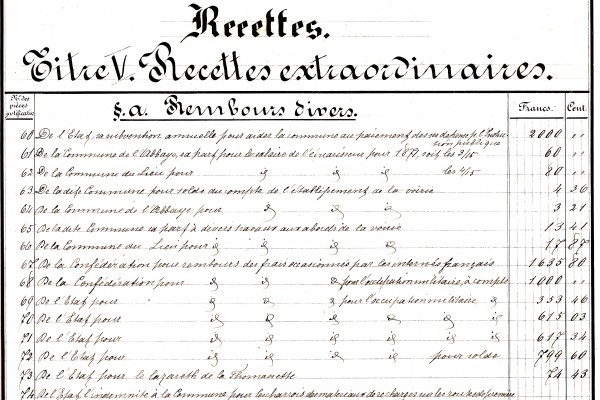 Recettes.
Titre V. Recettes extraordinaires.
Nos des pièces justificatives
§. a. Rembours divers.
Francs. Cent.
60 De l'Etat, sa subvention annuelle pour aider la commune au paiement des dépenses p. l'Instruction publique 2000 "
61 De la Commune de l'Abbaye, sa part pour le salaire de pour 1871, soit les 3/15 60 "
62 De la Commune du Lieu pour id id les 4/15 80 "
63 De la dite Commune pour solde du compte de l'établissement de la voirie 4 36
64 De la Commune de l'Abbaye pour id id 3 21
65 De la dite Commune sa part à divers travaux aux abords de la voirie 13 41
66 De la Commune du Lieu pour id id id 17 87
67 De la Confédération pour rembours des frais occasionnés par les internés français 1635 80
68 De la Confédération pour id id pour l'occupation militaire, à compte 1000 "
69 De l'Etat pour id id id pour l'occupation militaire id 353 46
70 De l'Etat pour id id id id id 615 03
71 De l'Etat pour id id id id id 617 34
72 De l'Etat pour id id id id pour solde 799 60
73 De l'Etat pour le lazareth de la Thomassette 74 43
74 De l'Etat l'indemnité à la Commune pour les charrois des matériaux de recharges sur les routes de première